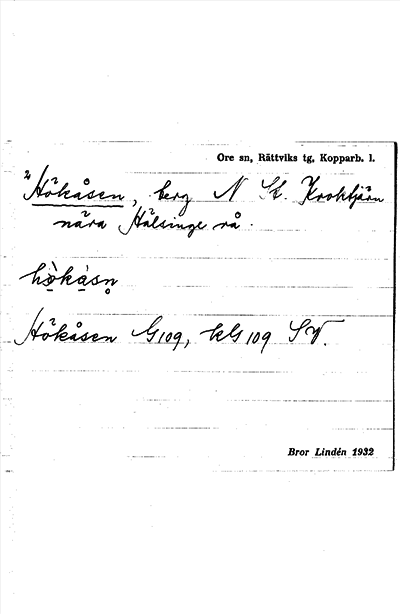 Ore sn, Rättviks tg, Kopparb. l.
2 Hökåsen, berg N St. Kroktjärn
nära Hälsinge rå.
hò̱kà̱sn̥
Hökåsen G109, kG 109 SV.
Bror Lindén 1932